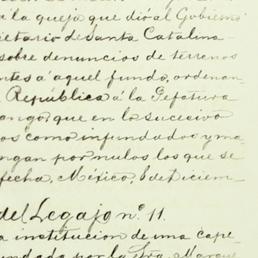 r la queja que dió al Gobierno
ietario de Santa Catalina
sobre denuncios de terrenos
ntes á aquel fundo, ordenan
República á la Gefatura
ango, que en lo sucesivo
os como infundados y ma-
ngan por nulos los que se
fecha, México, 6 de Diciem-
del Legajo nº 11.
a institucion de una cape-
undada por la Sra. Marque